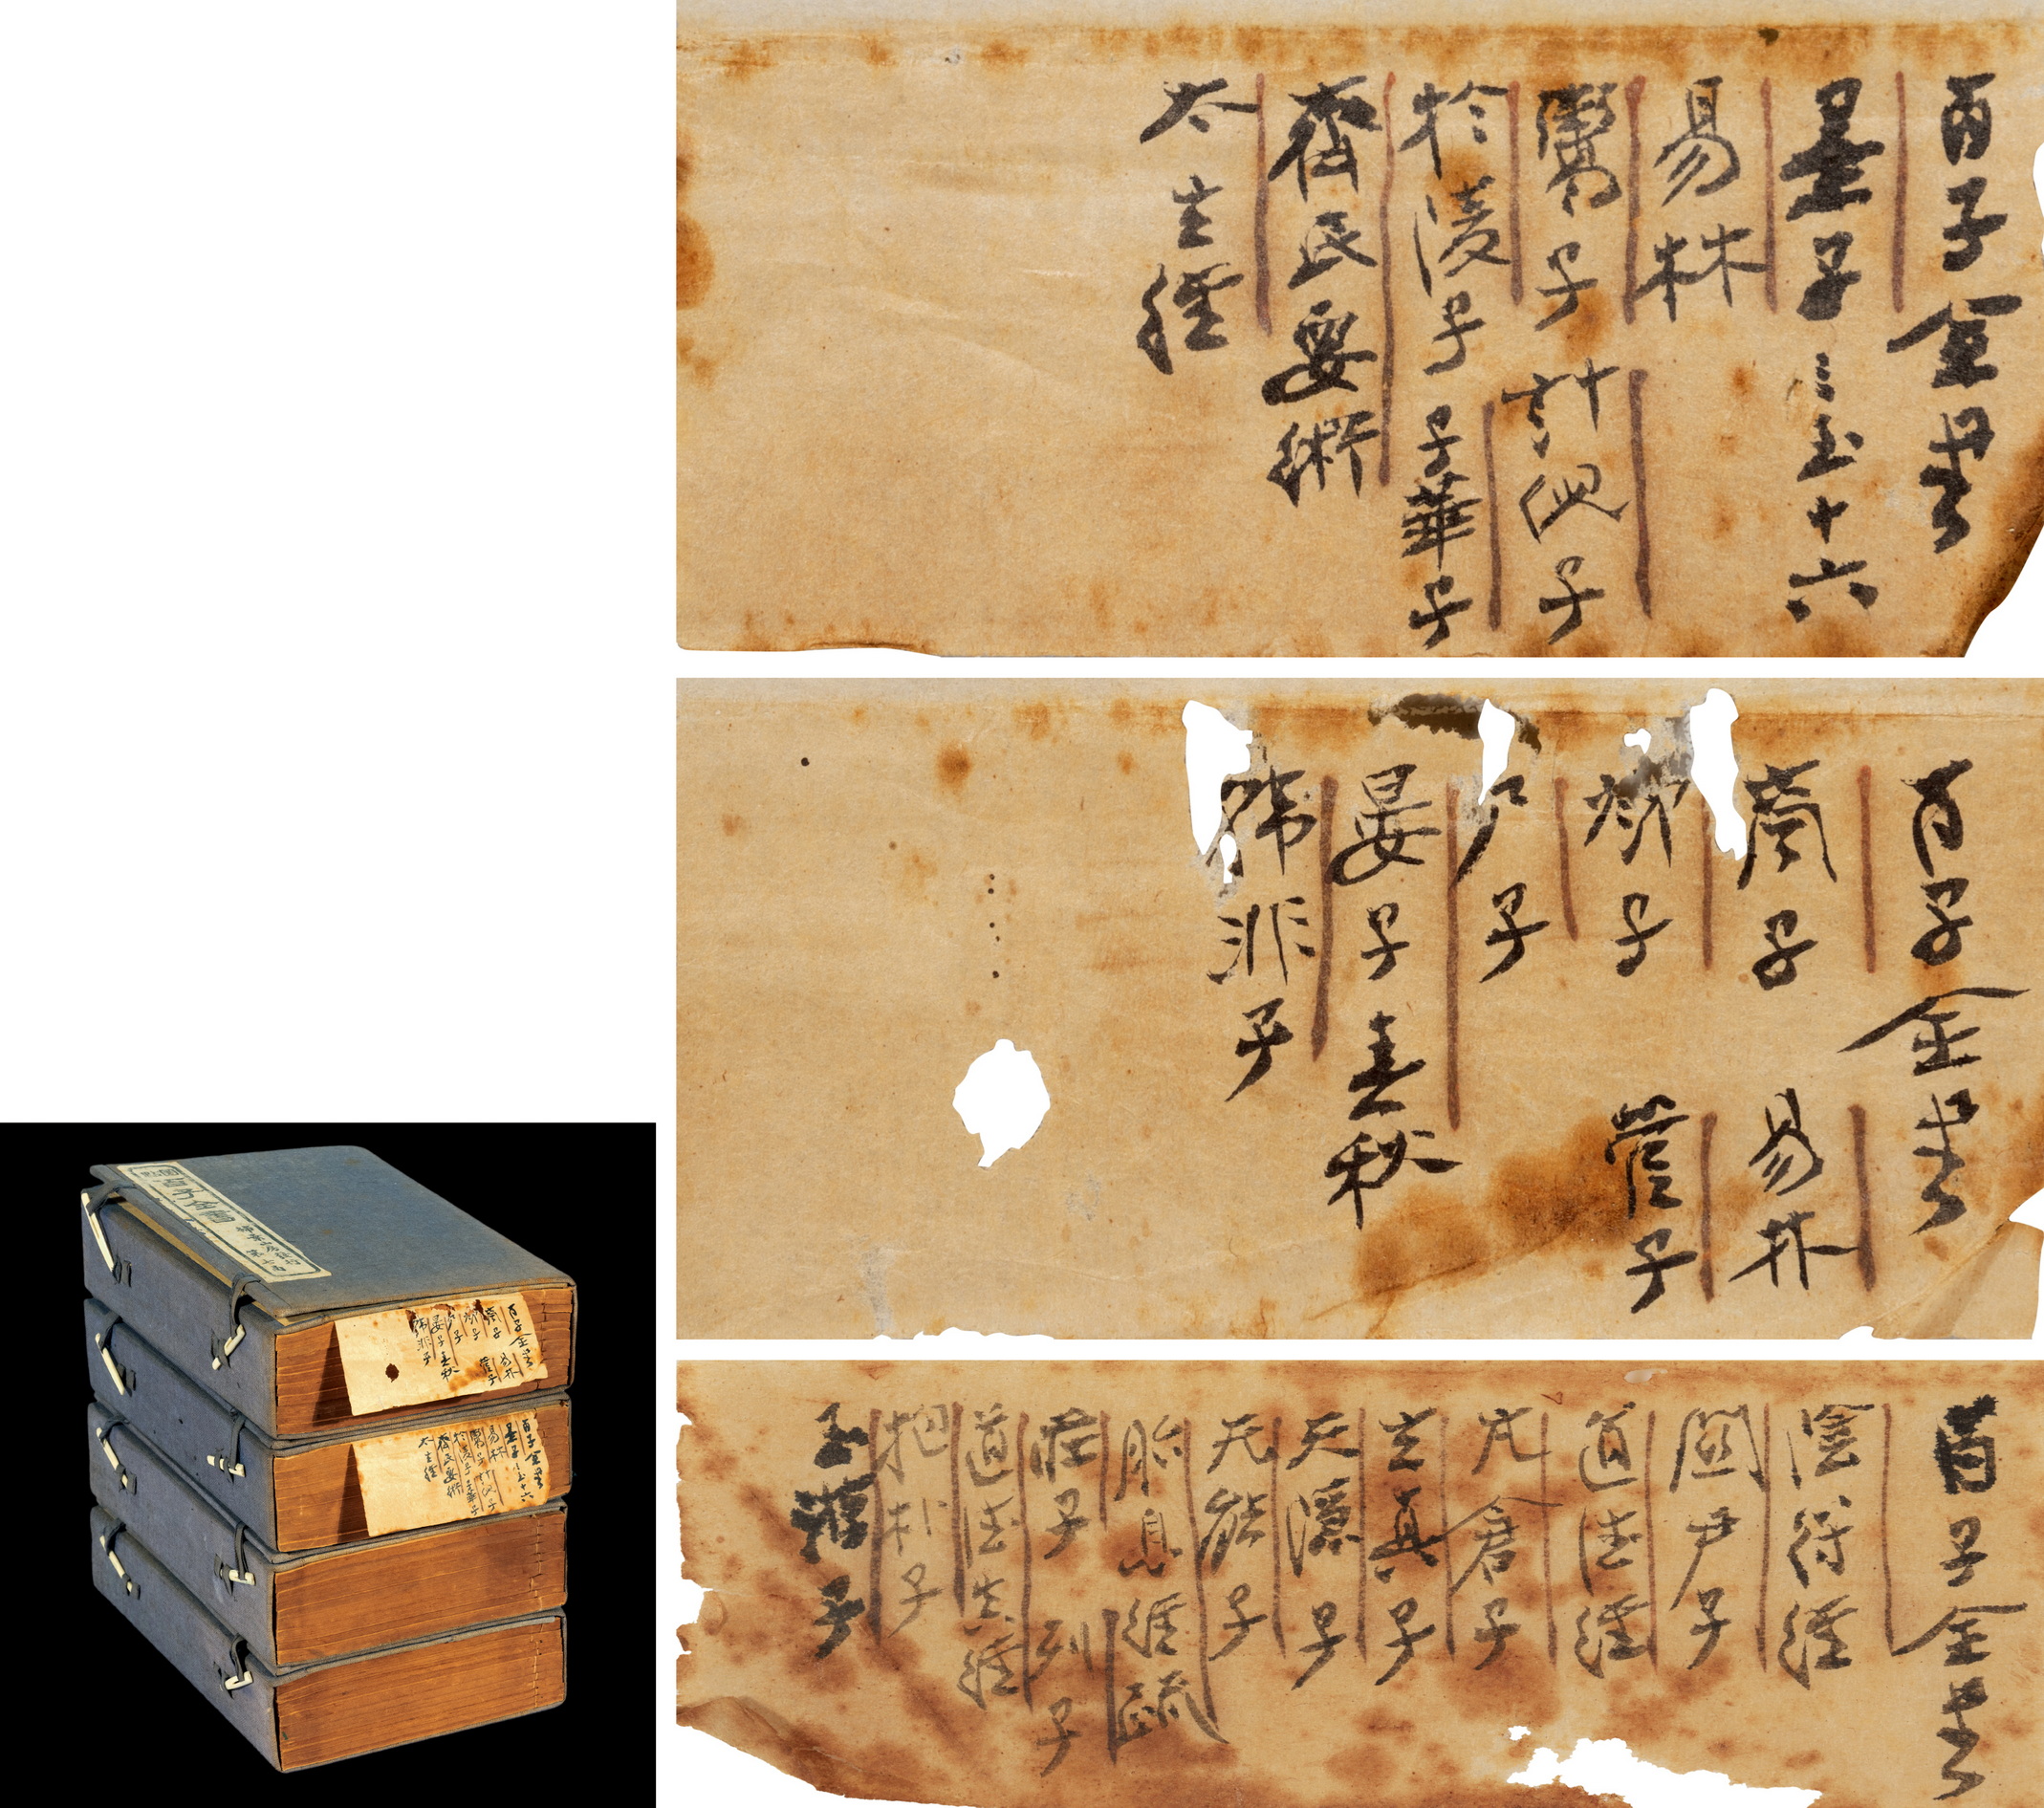 百子全書
墨子 三至十六
易林
鬻子 計倪子
於陵子 子華子
齊民要術
太玄經
百子全書
商子 易林
鄧子 管子
尸子
晏子春秋
韓非子
百子全書
陰符經
關尹子
道德經
亢倉子
玄真子
天隱子
无能子
胎息經疏
莊子 列子
道德真經
抱朴子